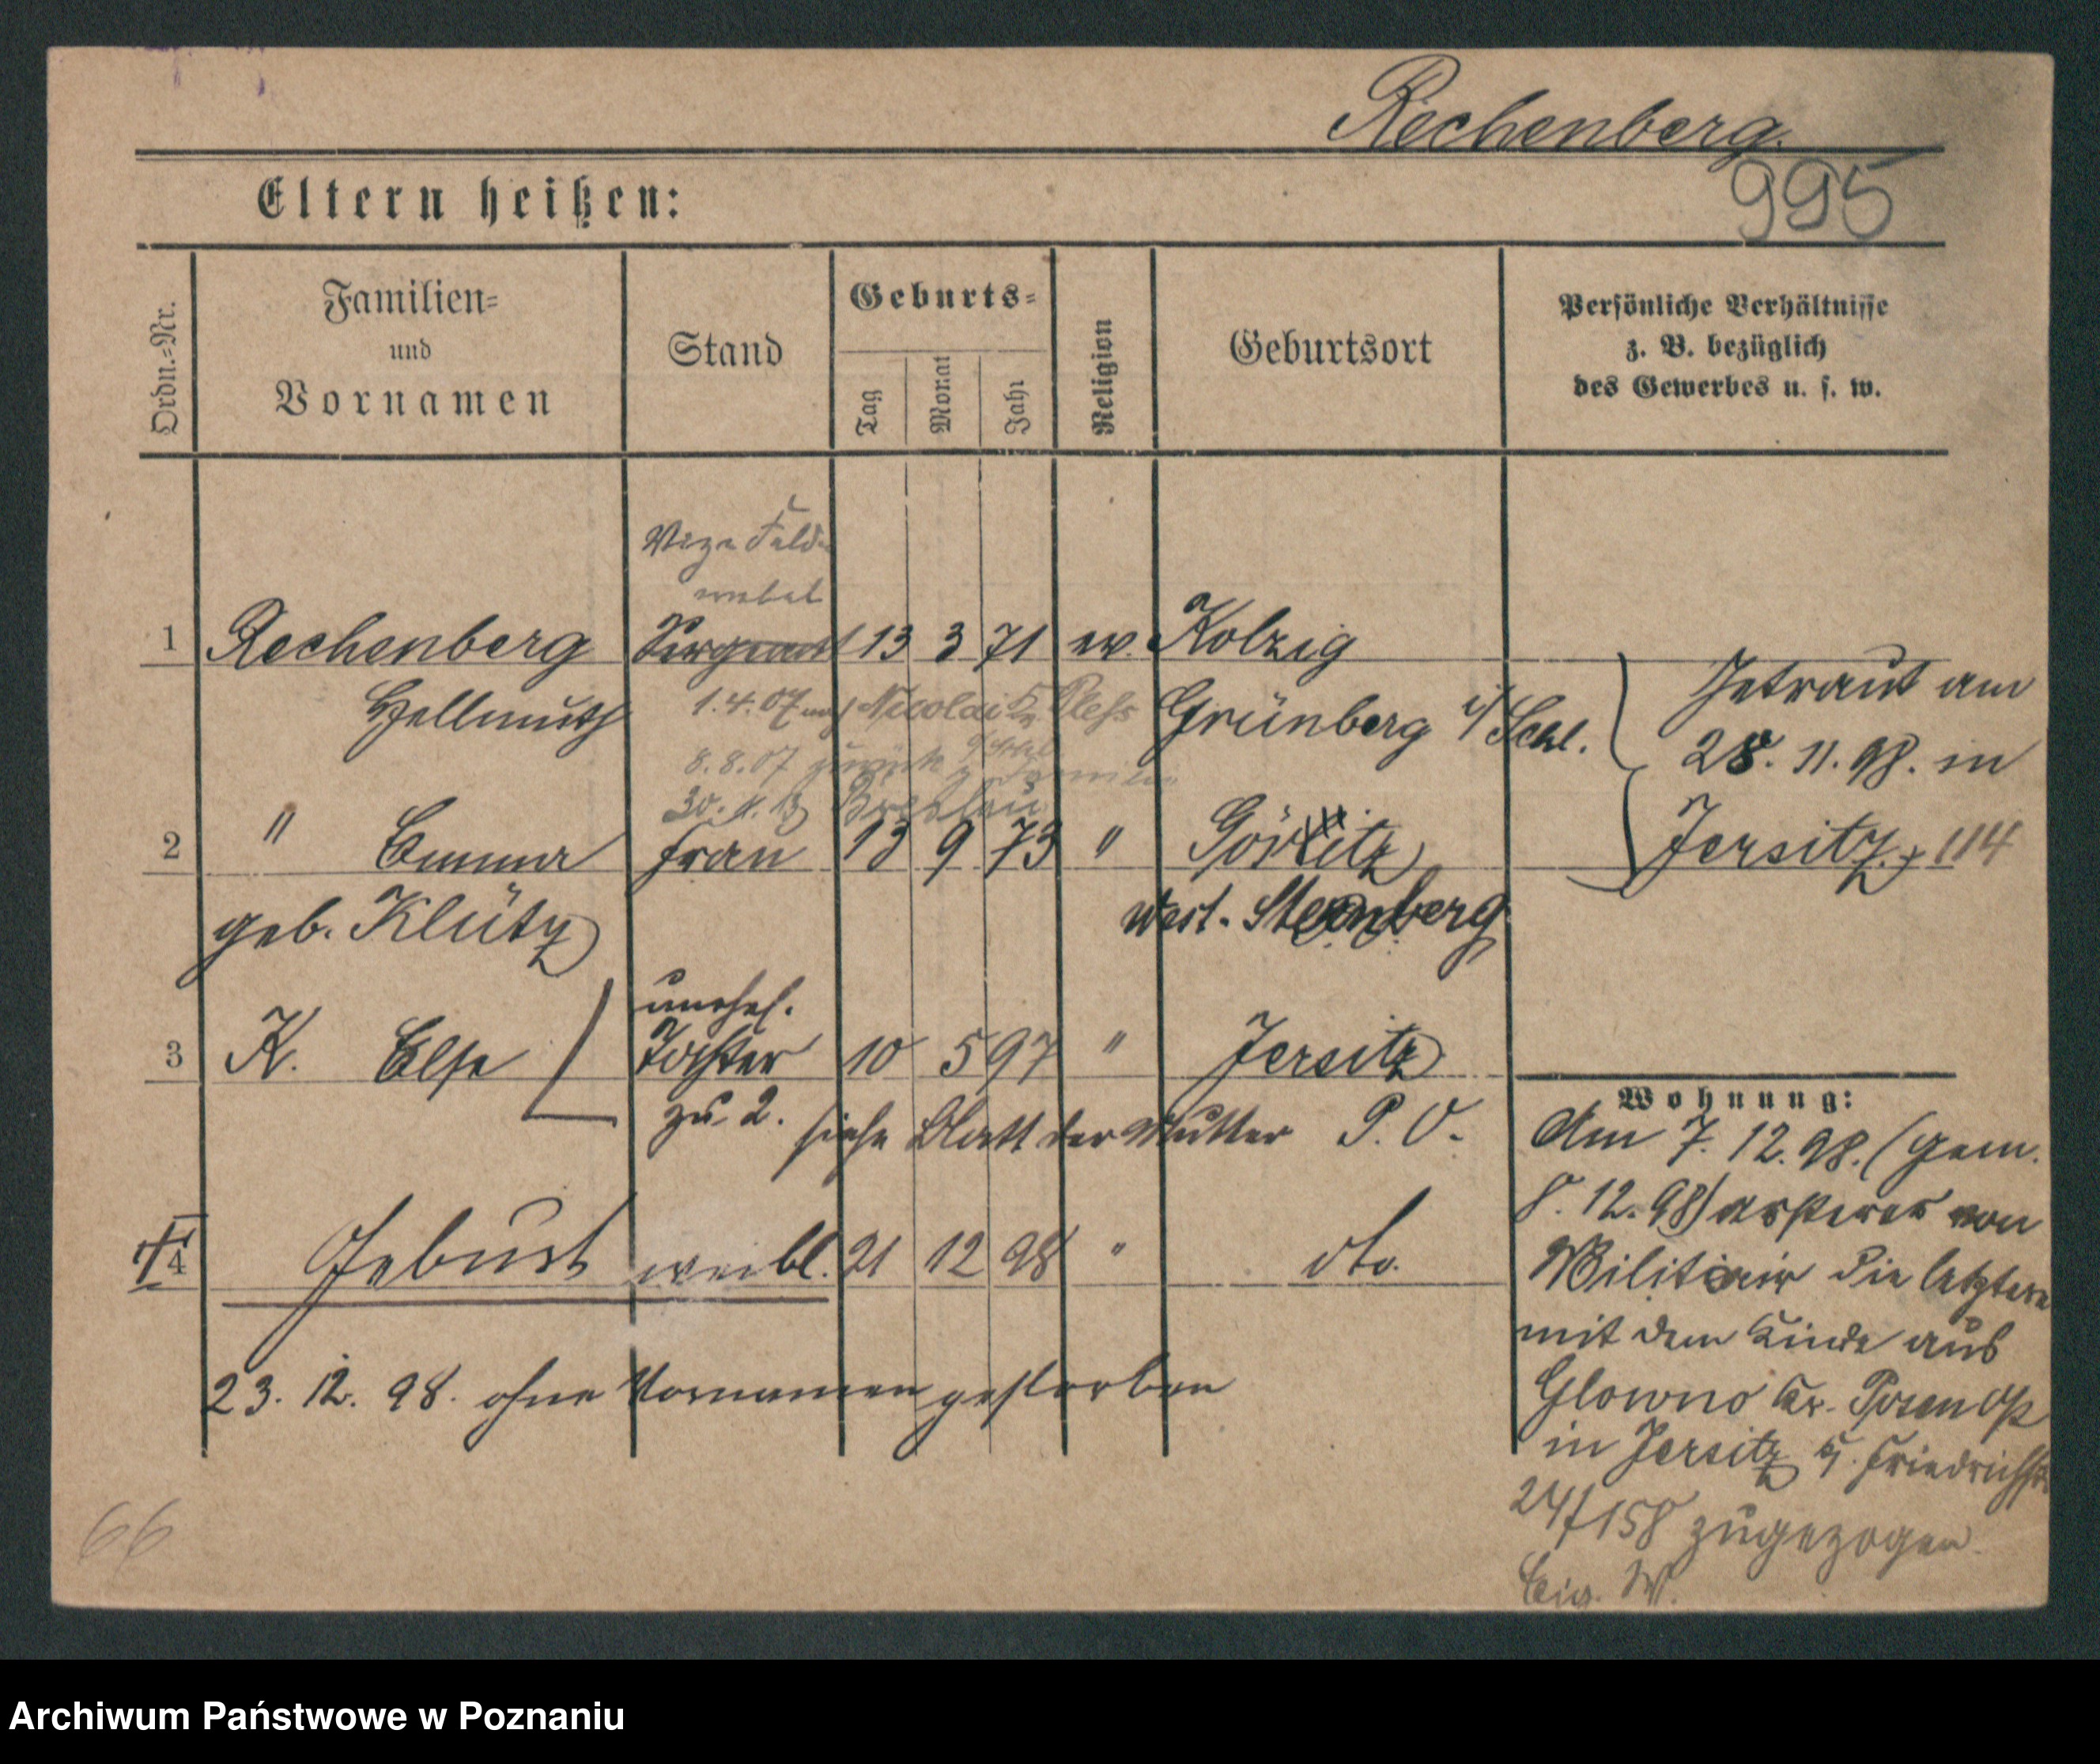 Rechenberg.
995
Eltern heißen:
Ordn.-Nr.
Familien-
und
Vornamen
Stand
Geburts-
Tag
Monat
Jahr
Religion
Geburtsort
Persönliche Verhältnisse
z. B. bezüglich
des Gewerbes u. s. w.
Vize Feld-
webel
1 Rechenberg Sergeant 13 3 71 ev. Kolzig
Hellmuth 1.4.07 nach Nicolai Kr. Pless Grünberg i/Schl.
8.8.07 zurück z. Familie
30. 4. 13 Breslau
Getraut am
28. 11. 98. in
Jersitz, 114
2 " Emma Frau 13 9 73 " Görbitz
geb. Klütz West-Sternberg
unehel.
3 K. Else Tochter 10 5 97 " Jersitz
zu 2. siehe Blatt der Mutter P. O.
4 Geburt weibl. 21 12 98 " dto.
23. 12. 98. ohne Vornamen gestorben
Wohnung:
Am 7. 12. 98. (gem.
8. 12. 98) ersterer von
Militair die letztere
mit dem Kinde aus
Glowno Kr. Posen Ost
in Jersitz Friedrichstr.
24/158 zugezogen.
W.
66
Archiwum Państwowe w Poznaniu